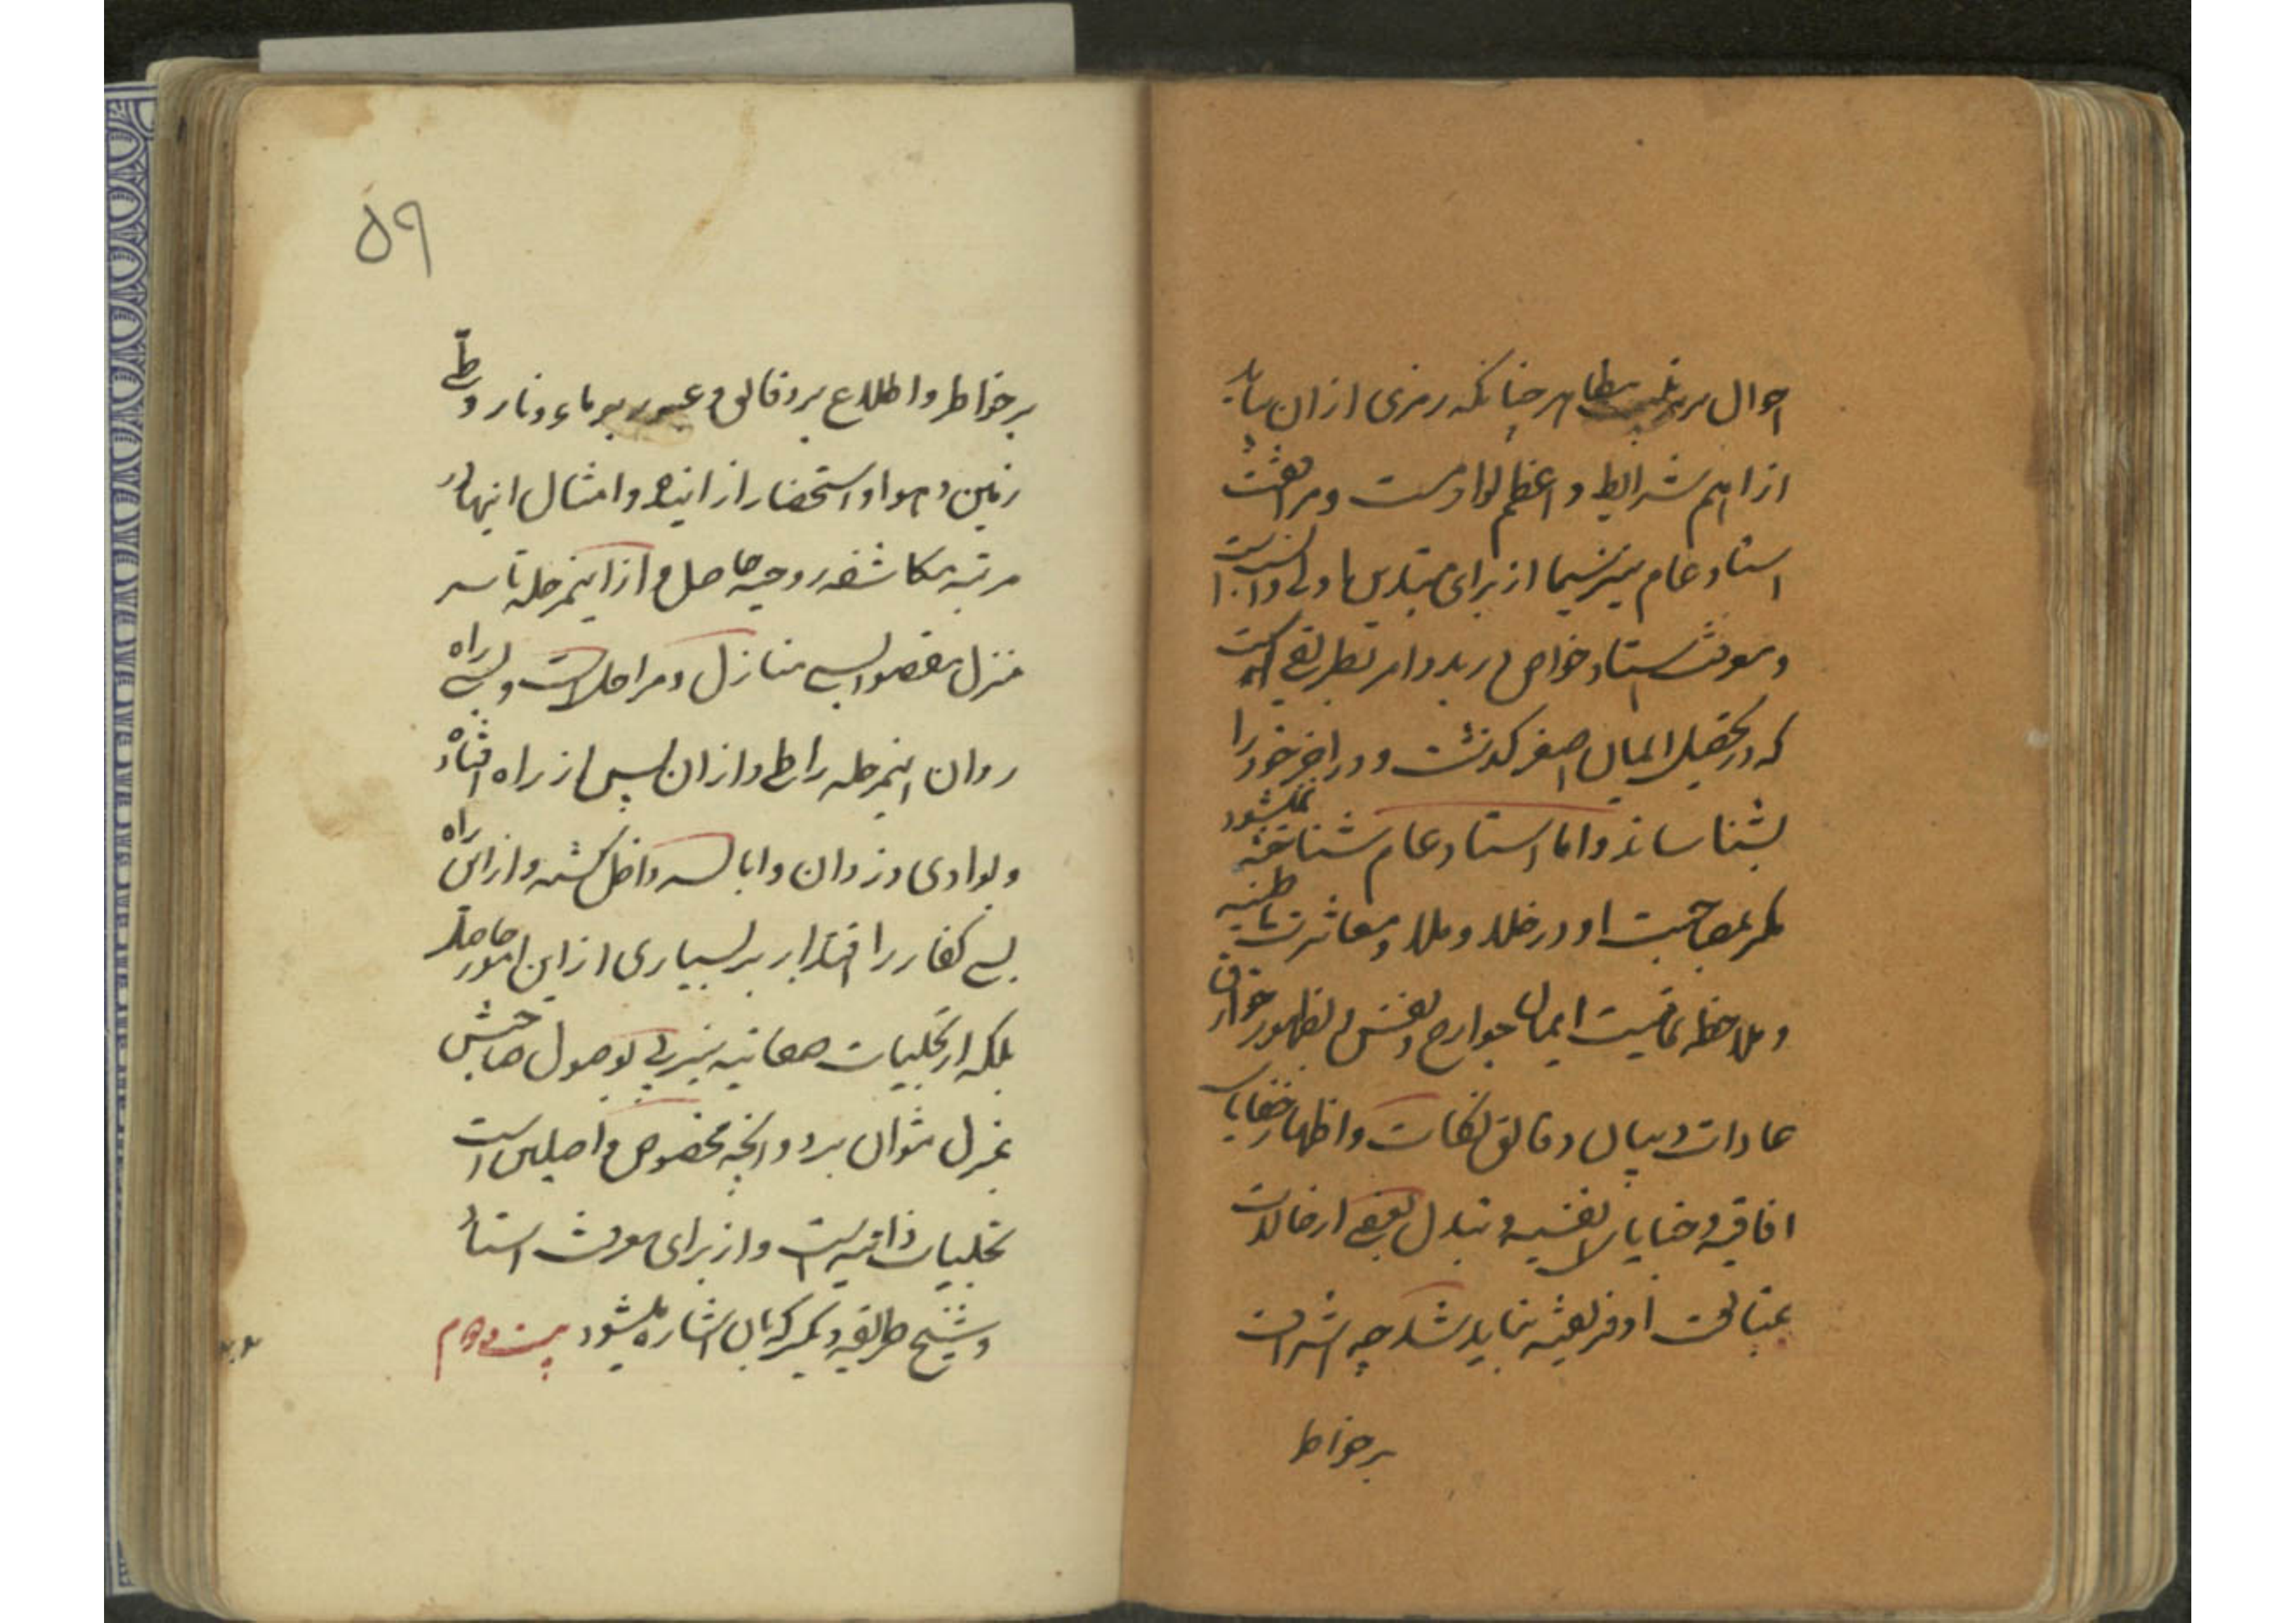 احوال بر مظاهر چنانکه رمزی از ان بیاید
از اهم شرایط و اعظم لوازمست و مرافقت
استاد عام نیز سیما از برای مبتدی اولی و انسب است
و معرفت استاد خاص در بدو امر بطریقی است
که در تحصیل ایمان اصغر گذشت و در اخر خود را
بشناساند و اما استاد عام شناخته نمیشود
مگر بمصاحبت او در خلا و ملا و معاشرت باطنیه
و ملاحظه تمامیت ایمان جوارح و نفس و بظهور خوارق
عادات و بیان دقایق نکات و اظهار خفایای
افاقیه و خبایای انفسیه و تبدل بعضی از حالات
بمتابعت او فریفته نباید شد چه اشراف
بر خواط
۵۹
بر خواطر و اطلاع بر دقایق و عبور بر ماء و نار و طی
زمین و هوا و استحضار از اینده و امثال اینها در
مرتبه مکاشفه روحیه حاصل و از اینمرحله تا سر
منزل مقصود بسی منازل و مراحل است و بسی راه
روان اینمرحله را طی و از ان پس از راه افتاده
و بوادی دزدان و ابالسه داخل گشته و از این راه
بسی کفار را اقتدار بر بسیاری از این امور حاصل
بلکه از تجلیات صفاتیه نیز پی بوصول صاحبش
بمنزل نتوان برد و انچه مخصوص واصلین است
تجلیات ذاتیه است و از برای معرفت استاد
و شیخ طریقه دیگر که بان اشاره میشود